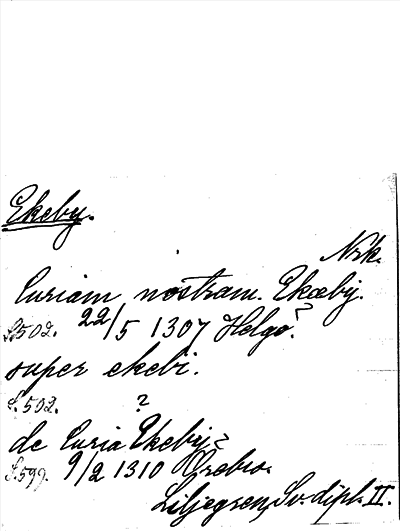 Ekeby.
Nrk.
Curiam nostram. Ekæby.
S. 502. 22/5 1307 Helgö?
super ekebi.
S. 502. ?
de Curia Ekeby
S. 599. 9/2 1310 Örebro.
Liljegren, Sv. dipl. II.